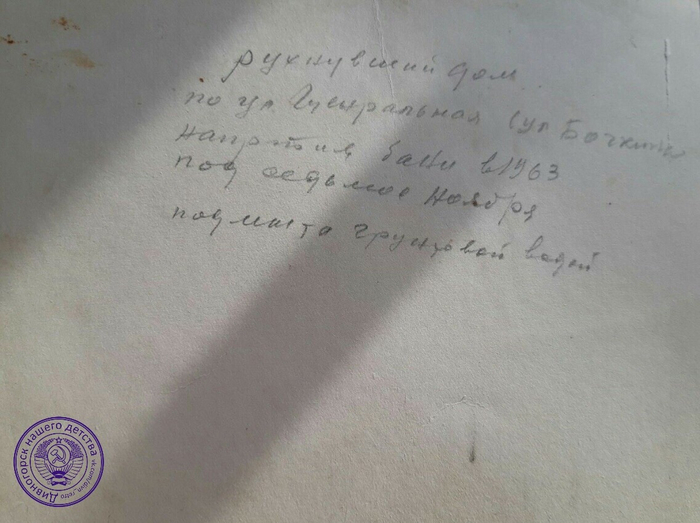 рухнувший дом
по ул. Центральная (ул Бочкина
напротив бани в 1963
под седьмое Ноября
подмыта грунтовой водой
Дивногорск нашего детства